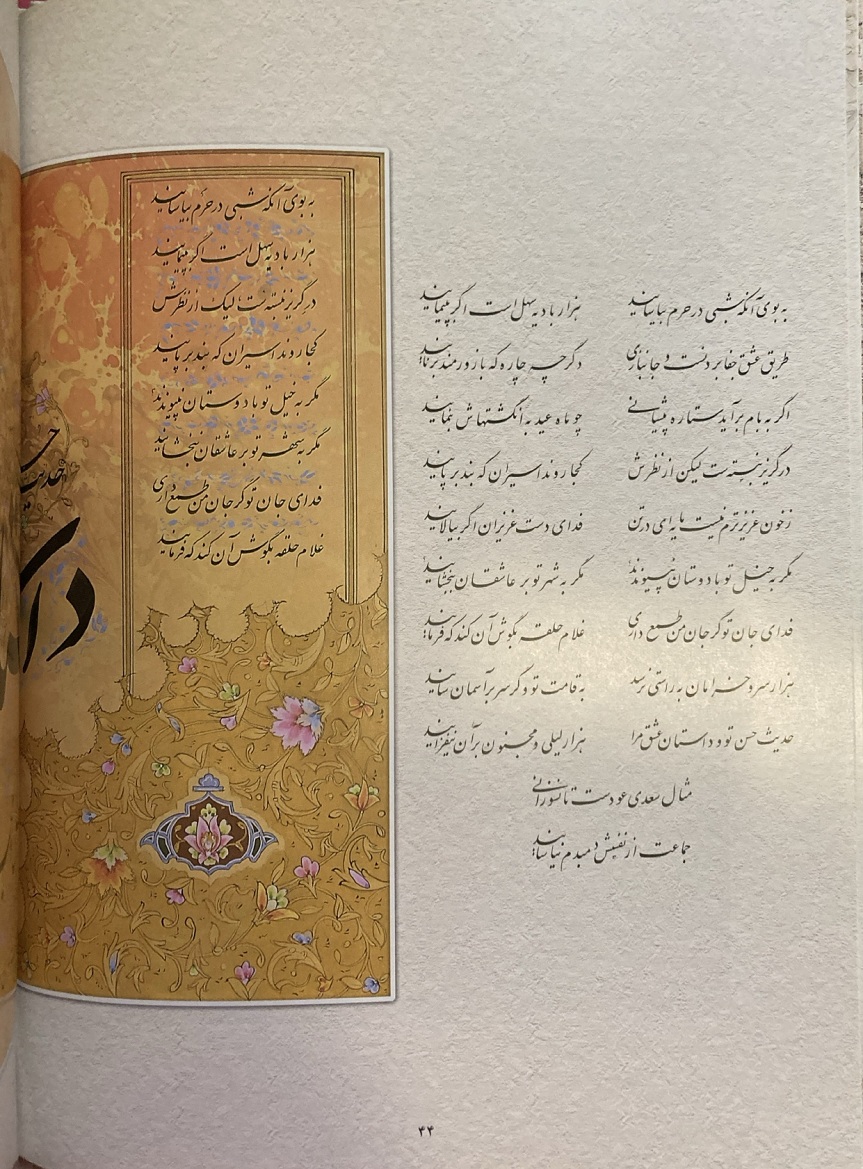 به بوی آنکه شبی در حرم بیاسایند هزار بادیه سهل است اگر بپیمایند
طریق عشق جفا بردنست و جانبازی دگر چه چاره که با زورمند برنایند
اگر به بام برآید ستاره پیشانی چو ماه عید به انگشتهاش بنمایند
در گریز نبسته‌ست لیکن از نظرش کجا روند اسیران که بند بر پایند
ز خون عزیزترم نیست مایه‌ای در تن فدای دست عزیزان اگر بیالایند
مگر به خیل تو با دوستان نپیوندند مگر به شهر تو بر عاشقان نبخشایند
فدای جان تو گر جان من طمع داری غلام حلقه بگوش آن کند که فرمایند
هزار سرو خرامان به راستی نرسد به قامت تو وگر سر بر آسمان سایند
حدیث حسن تو و داستان عشق مرا هزار لیلی و مجنون بر آن نیفزایند
مثال سعدی عودست تا نسوزانی
جماعت از نفسش دمبدم نیاسایند
به بوی آنکه شبی در حرم بیاسایند
هزار بادیه سهل است اگر بپیمایند
در گریز نبسته‌ست لیک از نظرش
کجا روند اسیران که بند بر پایند
مگر به خیل تو با دوستان نپیوندند
مگر به شهر تو بر عاشقان نبخشایند
فدای جان تو گر جان من طمع داری
غلام حلقه بگوش آن کند که فرمایند
۴۴